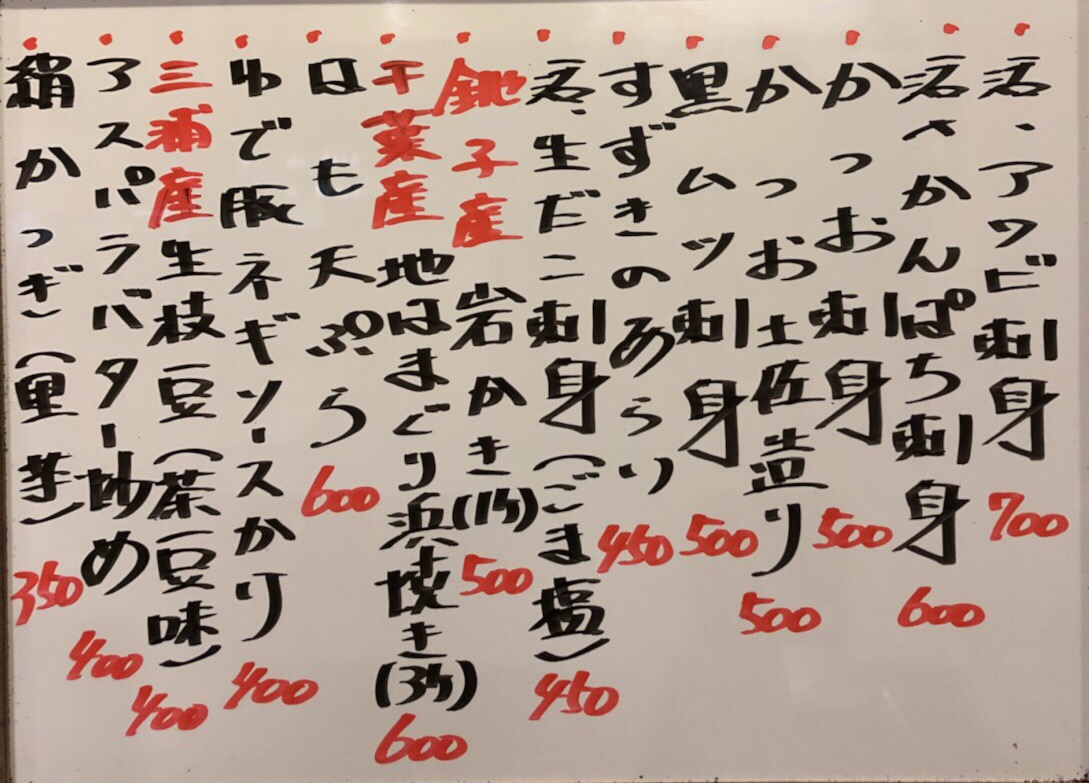 活、アワビ刺身 700
活〆かんぱち刺身 600
かつお刺身 500
かつお土佐造り 500
黒ムツ刺身 500
すずきのあらい 450
活、生だこ刺身(ごま塩) 450
銚子産岩かき(1ケ) 500
千葉産地はまぐり浜焼き(3ケ) 600
はも天ぷら 600
ゆで豚ネギソースかけ 400
三浦産生枝豆(茶豆味) 400
アスパラバター炒め 400
絹かつぎ(里芋) 350